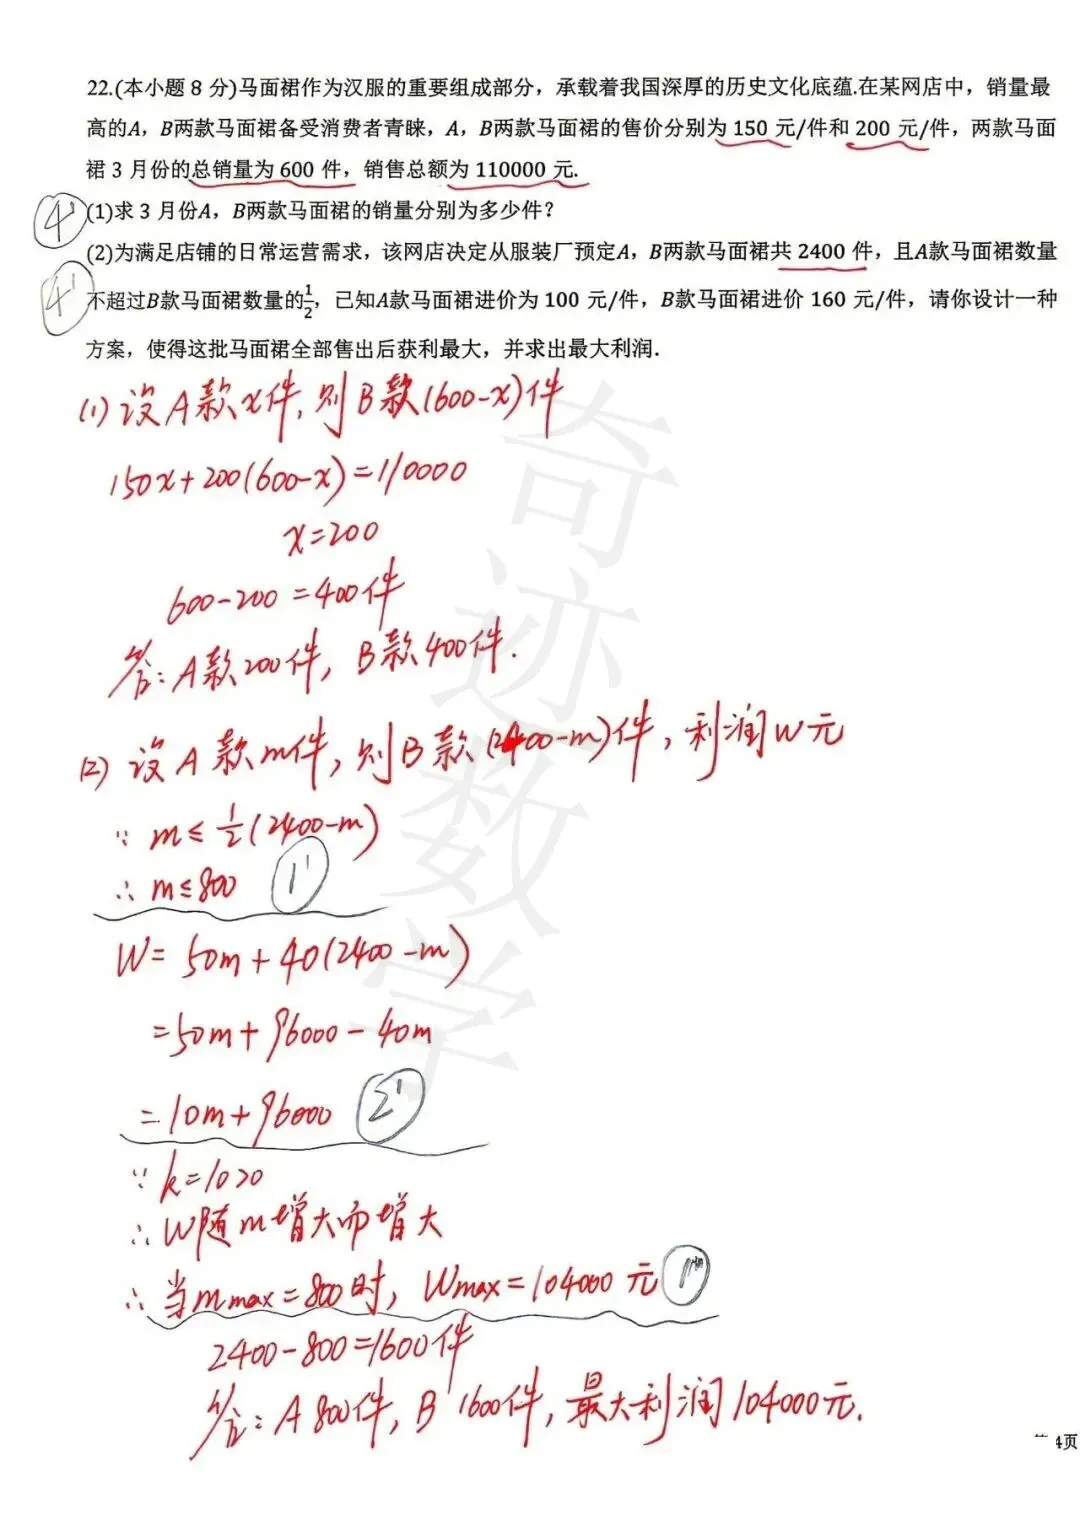 22.(本小题 8 分)马面裙作为汉服的重要组成部分，承载着我国深厚的历史文化底蕴.在某网店中，销量最
高的A，B两款马面裙备受消费者青睐，A，B两款马面裙的售价分别为 150 元/件和 200 元/件，两款马面
裙 3 月份的总销量为 600 件，销售总额为 110000 元.
4' (1)求 3 月份A，B两款马面裙的销量分别为多少件？
(2)为满足店铺的日常运营需求，该网店决定从服装厂预定A，B两款马面裙共 2400 件，且A款马面裙数量
4' 不超过B款马面裙数量的1/2，已知A款马面裙进价为 100 元/件，B款马面裙进价 160 元/件，请你设计一种
方案，使得这批马面裙全部售出后获利最大，并求出最大利润.
(1) 设A款x件,则B款(600-x)件
150x+200(600-x)=110000
x=200
600-200=400件
答:A款200件,B款400件.
(2) 设A款m件,则B款(2400-m)件,利润W元
∵ m≤1/2(2400-m)
∴ m≤800 1'
W= 50m+40(2400-m)
=50m+96000-40m
=10m+96000 2'
∵ k=10>0
∴ W随m增大而增大
∴ 当m max=800时, Wmax=104000元 1'
2400-800=1600件
答:A 800件,B 1600件,最大利润104000元.
4页
奇迹数学